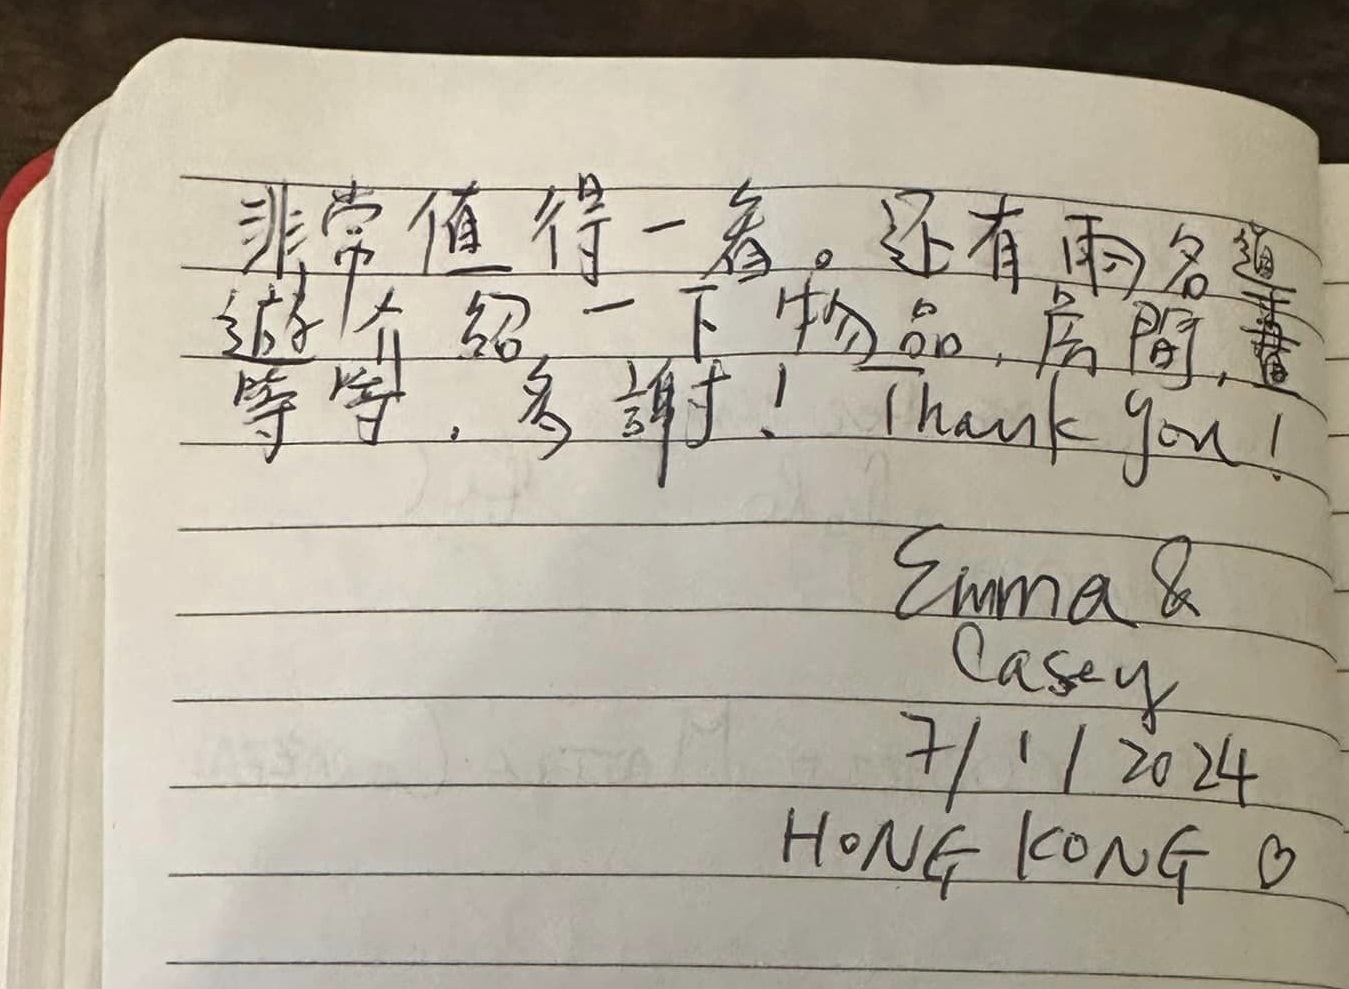 非常值得一看。还有兩名道
遊介紹一下物品,房間,書
等等,多謝! Thank you!
Emma &
Casey
7/1/2024
HONG KONG ♡